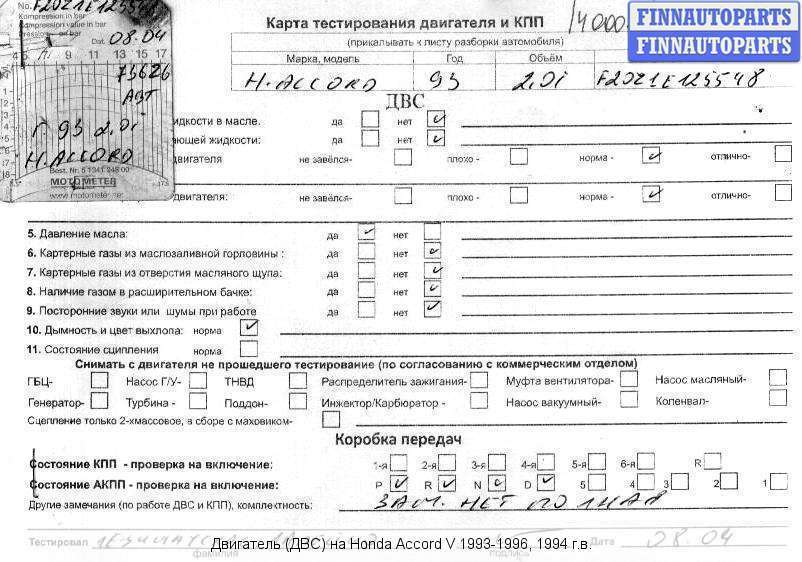 Карта тестирования двигателя и КПП
(прикалывать к листу разборки автомобиля)
FINNAUTOPARTS
FINNAUTOPARTS
No. F20Z1E125548
Kompression in bar
Compression value in bar
Pression en bar
Dat. 08.04
9 11 13 15 17
73626
АВТ
Г 93 2.0i
H. ACCORD
Best. Nr. 5 1341 248 00
MOTOMETER
www.motometer.de
Марка, модель Год Объём
H. ACCORD 93 2.0i F20Z1E125548
ДВС
идкости в масле. да нет
ающей жидкости: да нет
двигателя не завёлся- плохо - норма - отлично-
двигателя: не завёлся- плохо - норма - отлично-
5. Давление масла: да нет
6. Картерные газы из маслозаливной горловины : да нет
7. Картерные газы из отверстия масляного щупа: да нет
8. Наличие газом в расширительном бачке: да нет
9. Посторонние звуки или шумы при работе да нет
10. Дымность и цвет выхлопа: норма
11. Состояние сципления норма
Снимать с двигателя не прошедшего тестирование (по согласованию с коммерческим отделом)
ГБЦ- Насос Г/У- ТНВД Распределитель зажигания- Муфта вентилятора- Насос масляный-
Генератор- Турбина - Поддон- Инжектор/Карбюратор - Насос вакуумный- Коленвал-
Сцепление только 2-хмассовое, в сборе с маховиком-
Коробка передач
Состояние КПП - проверка на включение: 1-я 2-я 3-я 4-я 5-я 6-я R
Состояние АКПП - проверка на включение: P R N D 5 4 3 2 1
Другие замечания (по работе ДВС и КПП), комплектность: ЗАМ. НЕТ ПОЛНАЯ
Тестировал Дата 08.04
фамилия подпись
Двигатель (ДВС) на Honda Accord V 1993-1996, 1994 г.в.